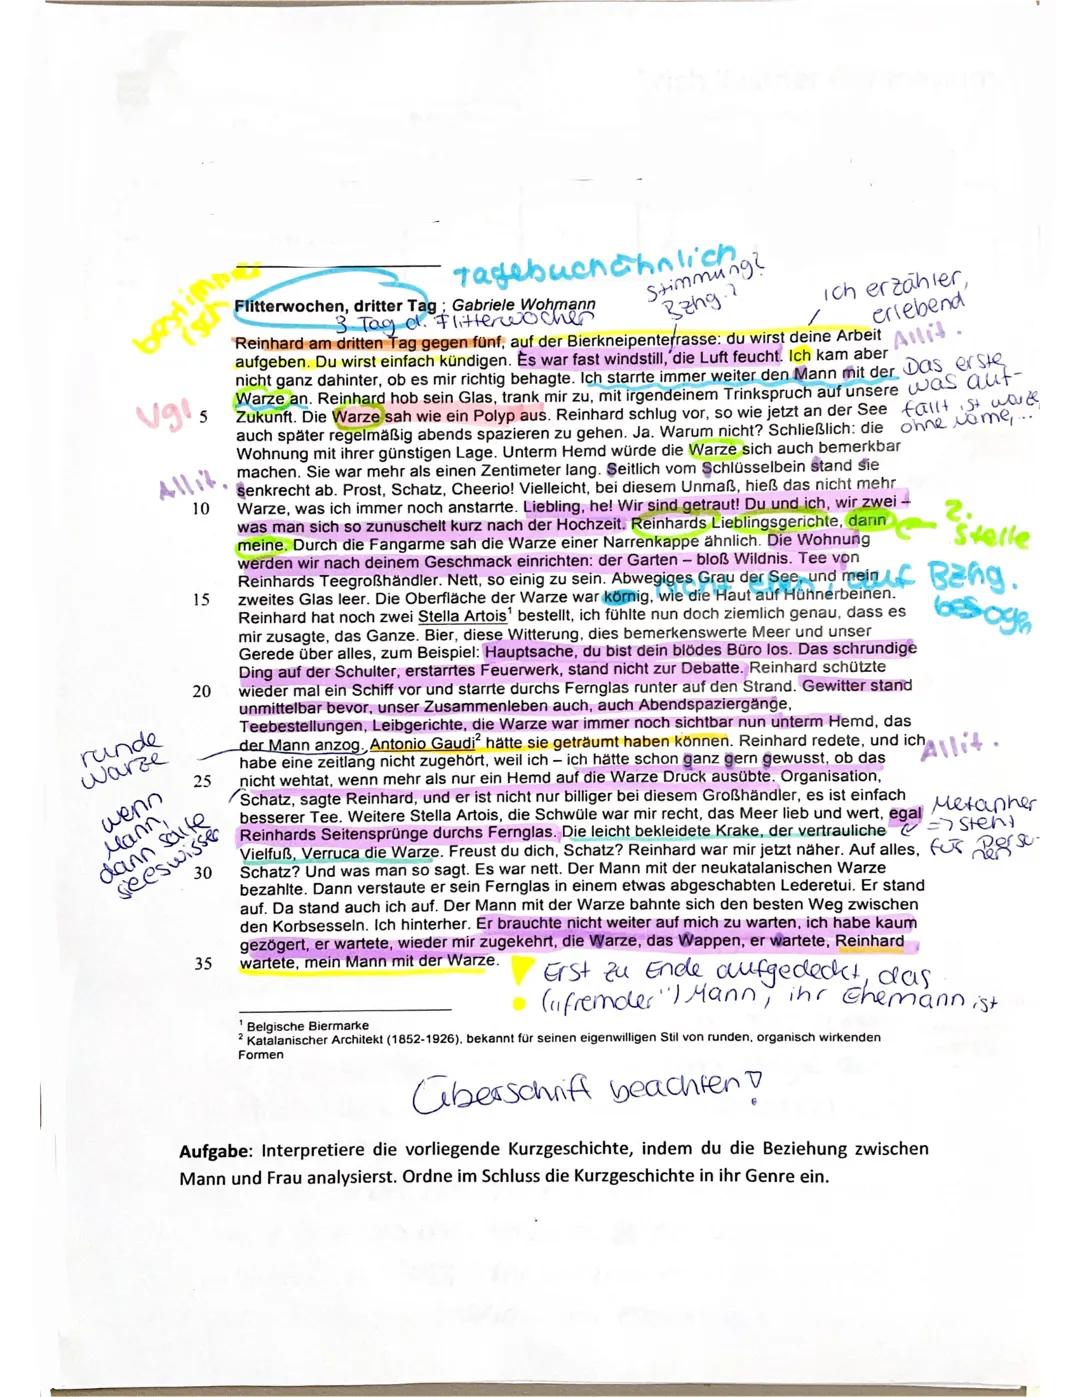 Tagebuchähnlich
bestimmerisch
Stimmung?
Bzhg.?
ich erzähler,
erlebend
Flitterwochen, dritter Tag ; Gabriele Wohmann
3 Tag d. Flitterwochen
Reinhard am dritten Tag gegen fünf, auf der Bierkneipenterrasse: du wirst deine Arbeit
Allit.
aufgeben. Du wirst einfach kündigen. Es war fast windstill, die Luft feucht. Ich kam aber
nicht ganz dahinter, ob es mir richtig behagte. Ich starrte immer weiter den Mann mit der
Das erste
was auf-
fällt, ist warze
ohne name,...
Warze an. Reinhard hob sein Glas, trank mir zu, mit irgendeinem Trinkspruch auf unsere
Vgl
5 Zukunft. Die Warze sah wie ein Polyp aus. Reinhard schlug vor, so wie jetzt an der See
auch später regelmäßig abends spazieren zu gehen. Ja. Warum nicht? Schließlich: die
Wohnung mit ihrer günstigen Lage. Unterm Hemd würde die Warze sich auch bemerkbar
machen. Sie war mehr als einen Zentimeter lang. Seitlich vom Schlüsselbein stand sie
Allit.
senkrecht ab. Prost, Schatz, Cheerio! Vielleicht, bei diesem Unmaß, hieß das nicht mehr
10 Warze, was ich immer noch anstarrte. Liebling, he! Wir sind getraut! Du und ich, wir zwei –
was man sich so zunuschelt kurz nach der Hochzeit. Reinhards Lieblingsgerichte, dann
2.
Stelle
meine. Durch die Fangarme sah die Warze einer Narrenkappe ähnlich. Die Wohnung
werden wir nach deinem Geschmack einrichten: der Garten – bloß Wildnis. Tee von
Reinhards Teegroßhändler. Nett, so einig zu sein. Abwegiges Grau der See, und mein
auf Bzhg.
bezogen
15 zweites Glas leer. Die Oberfläche der Warze war körnig, wie die Haut auf Hühnerbeinen.
Reinhard hat noch zwei Stella Artois¹ bestellt, ich fühlte nun doch ziemlich genau, dass es
mir zusagte, das Ganze. Bier, diese Witterung, dies bemerkenswerte Meer und unser
Gerede über alles, zum Beispiel: Hauptsache, du bist dein blödes Büro los. Das schrundige
Ding auf der Schulter, erstarrtes Feuerwerk, stand nicht zur Debatte. Reinhard schützte
20 wieder mal ein Schiff vor und starrte durchs Fernglas runter auf den Strand. Gewitter stand
unmittelbar bevor, unser Zusammenleben auch, auch Abendspaziergänge,
Teebestellungen, Leibgerichte, die Warze war immer noch sichtbar nun unterm Hemd, das
runde
warze
der Mann anzog. Antonio Gaudi² hätte sie geträumt haben können. Reinhard redete, und ich
Allit.
habe eine zeitlang nicht zugehört, weil ich – ich hätte schon ganz gern gewusst, ob das
25 nicht wehtat, wenn mehr als nur ein Hemd auf die Warze Druck ausübte. Organisation,
wenn
Mann,
dann sollte
sie es wissen
Schatz, sagte Reinhard, und er ist nicht nur billiger bei diesem Großhändler, es ist einfach
besserer Tee. Weitere Stella Artois, die Schwüle war mir recht, das Meer lieb und wert, egal
Metapher
=> steht
für Person
Reinhards Seitensprünge durchs Fernglas. Die leicht bekleidete Krake, der vertrauliche
Vielfuß, Verruca die Warze. Freust du dich, Schatz? Reinhard war mir jetzt näher. Auf alles,
30 Schatz? Und was man so sagt. Es war nett. Der Mann mit der neukatalanischen Warze
bezahlte. Dann verstaute er sein Fernglas in einem etwas abgeschabten Lederetui. Er stand
auf. Da stand auch ich auf. Der Mann mit der Warze bahnte sich den besten Weg zwischen
den Korbsesseln. Ich hinterher. Er brauchte nicht weiter auf mich zu warten, ich habe kaum
gezögert, er wartete, wieder mir zugekehrt, die Warze, das Wappen, er wartete, Reinhard
35 wartete, mein Mann mit der Warze.
! Erst zu Ende aufgedeckt, das
("fremder") Mann, ihr Ehemann ist
¹ Belgische Biermarke
² Katalanischer Architekt (1852-1926), bekannt für seinen eigenwilligen Stil von runden, organisch wirkenden
Formen
Überschrift beachten!
Aufgabe: Interpretiere die vorliegende Kurzgeschichte, indem du die Beziehung zwischen
Mann und Frau analysierst. Ordne im Schluss die Kurzgeschichte in ihr Genre ein.